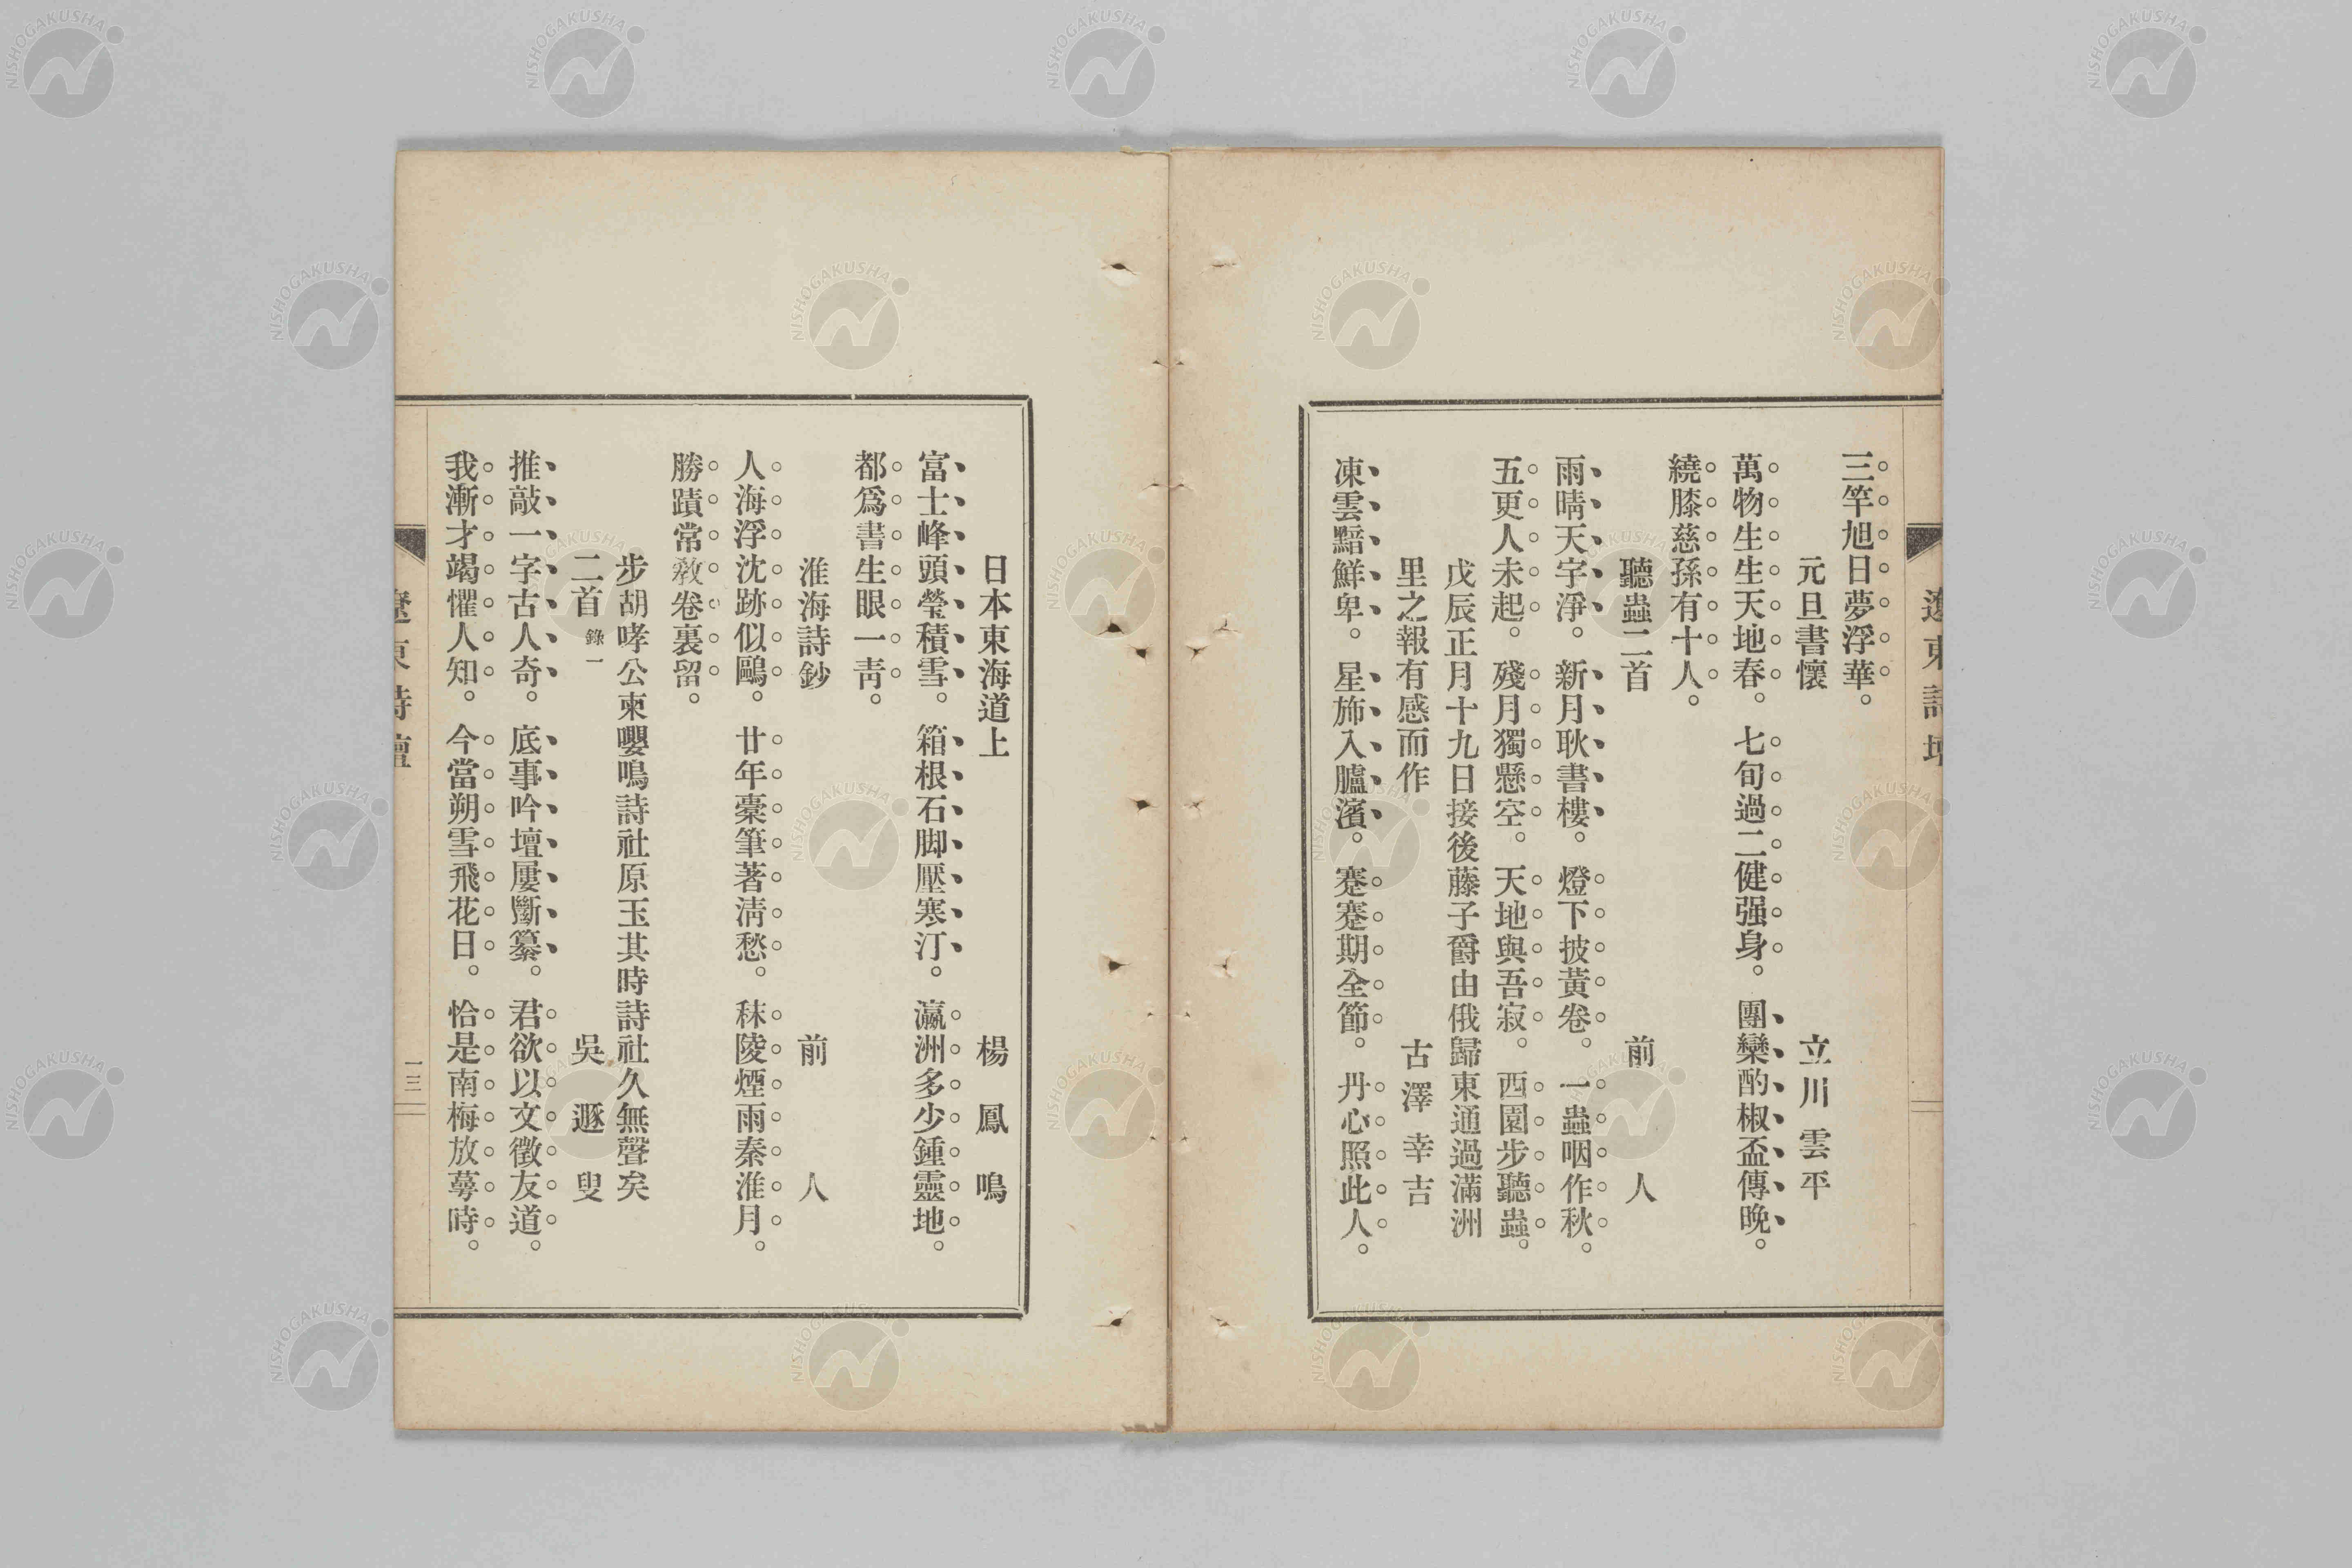 三竿旭日夢浮華。
元旦書懷　立川雲平
萬物生生天地春。七旬過二健强身。團欒酌椒盃傳晚。
繞膝慈孫有十人。
聽蟲二首　前人
雨晴天宇淨。新月耿書樓。燈下披黃卷。一蟲咽作秋。
五更人未起。殘月獨懸空。天地與吾寂。西園步聽蟲。
戊辰正月十九日接後藤子爵由俄歸東通過滿洲
里之報有感而作　古澤幸吉
凍雲黯鮮卑。星斾入臚濱。蹇蹇期全節。丹心照此人。
遼東詩壇
日本東海道上　楊鳳鳴
富士峰頭瑩積雪。箱根石脚壓寒汀。瀛洲多少鍾靈地。
都爲書生眼一靑。
淮海詩鈔　前人
人海浮沈跡似鷗。廿年橐筆著淸愁。秣陵煙雨秦淮月。
勝蹟常教卷裏留。
步胡哮公柬嚶鳴詩社原玉其時詩社久無聲矣
二首 錄一　吳遯叟
推敲一字古人奇。底事吟壇屢斷纂。君欲以文徵友道。
我漸才竭懼人知。今當朔雪飛花日。恰是南梅放蕚時。
遼東詩壇
一三
NISHOGAKUSHA